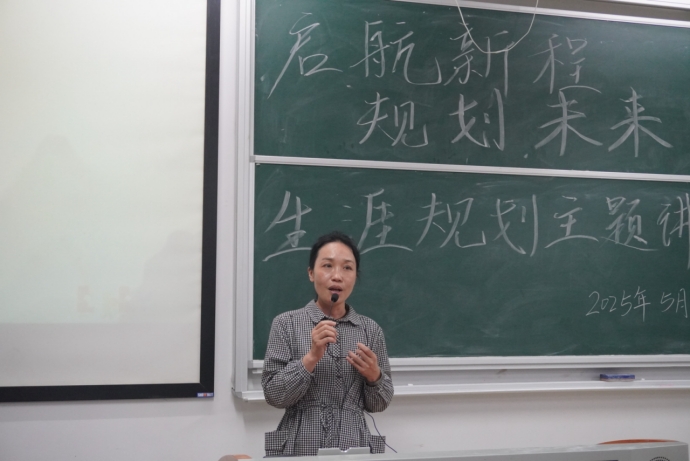 启航新程
规划未来
生涯规划主题讲
2025年5月